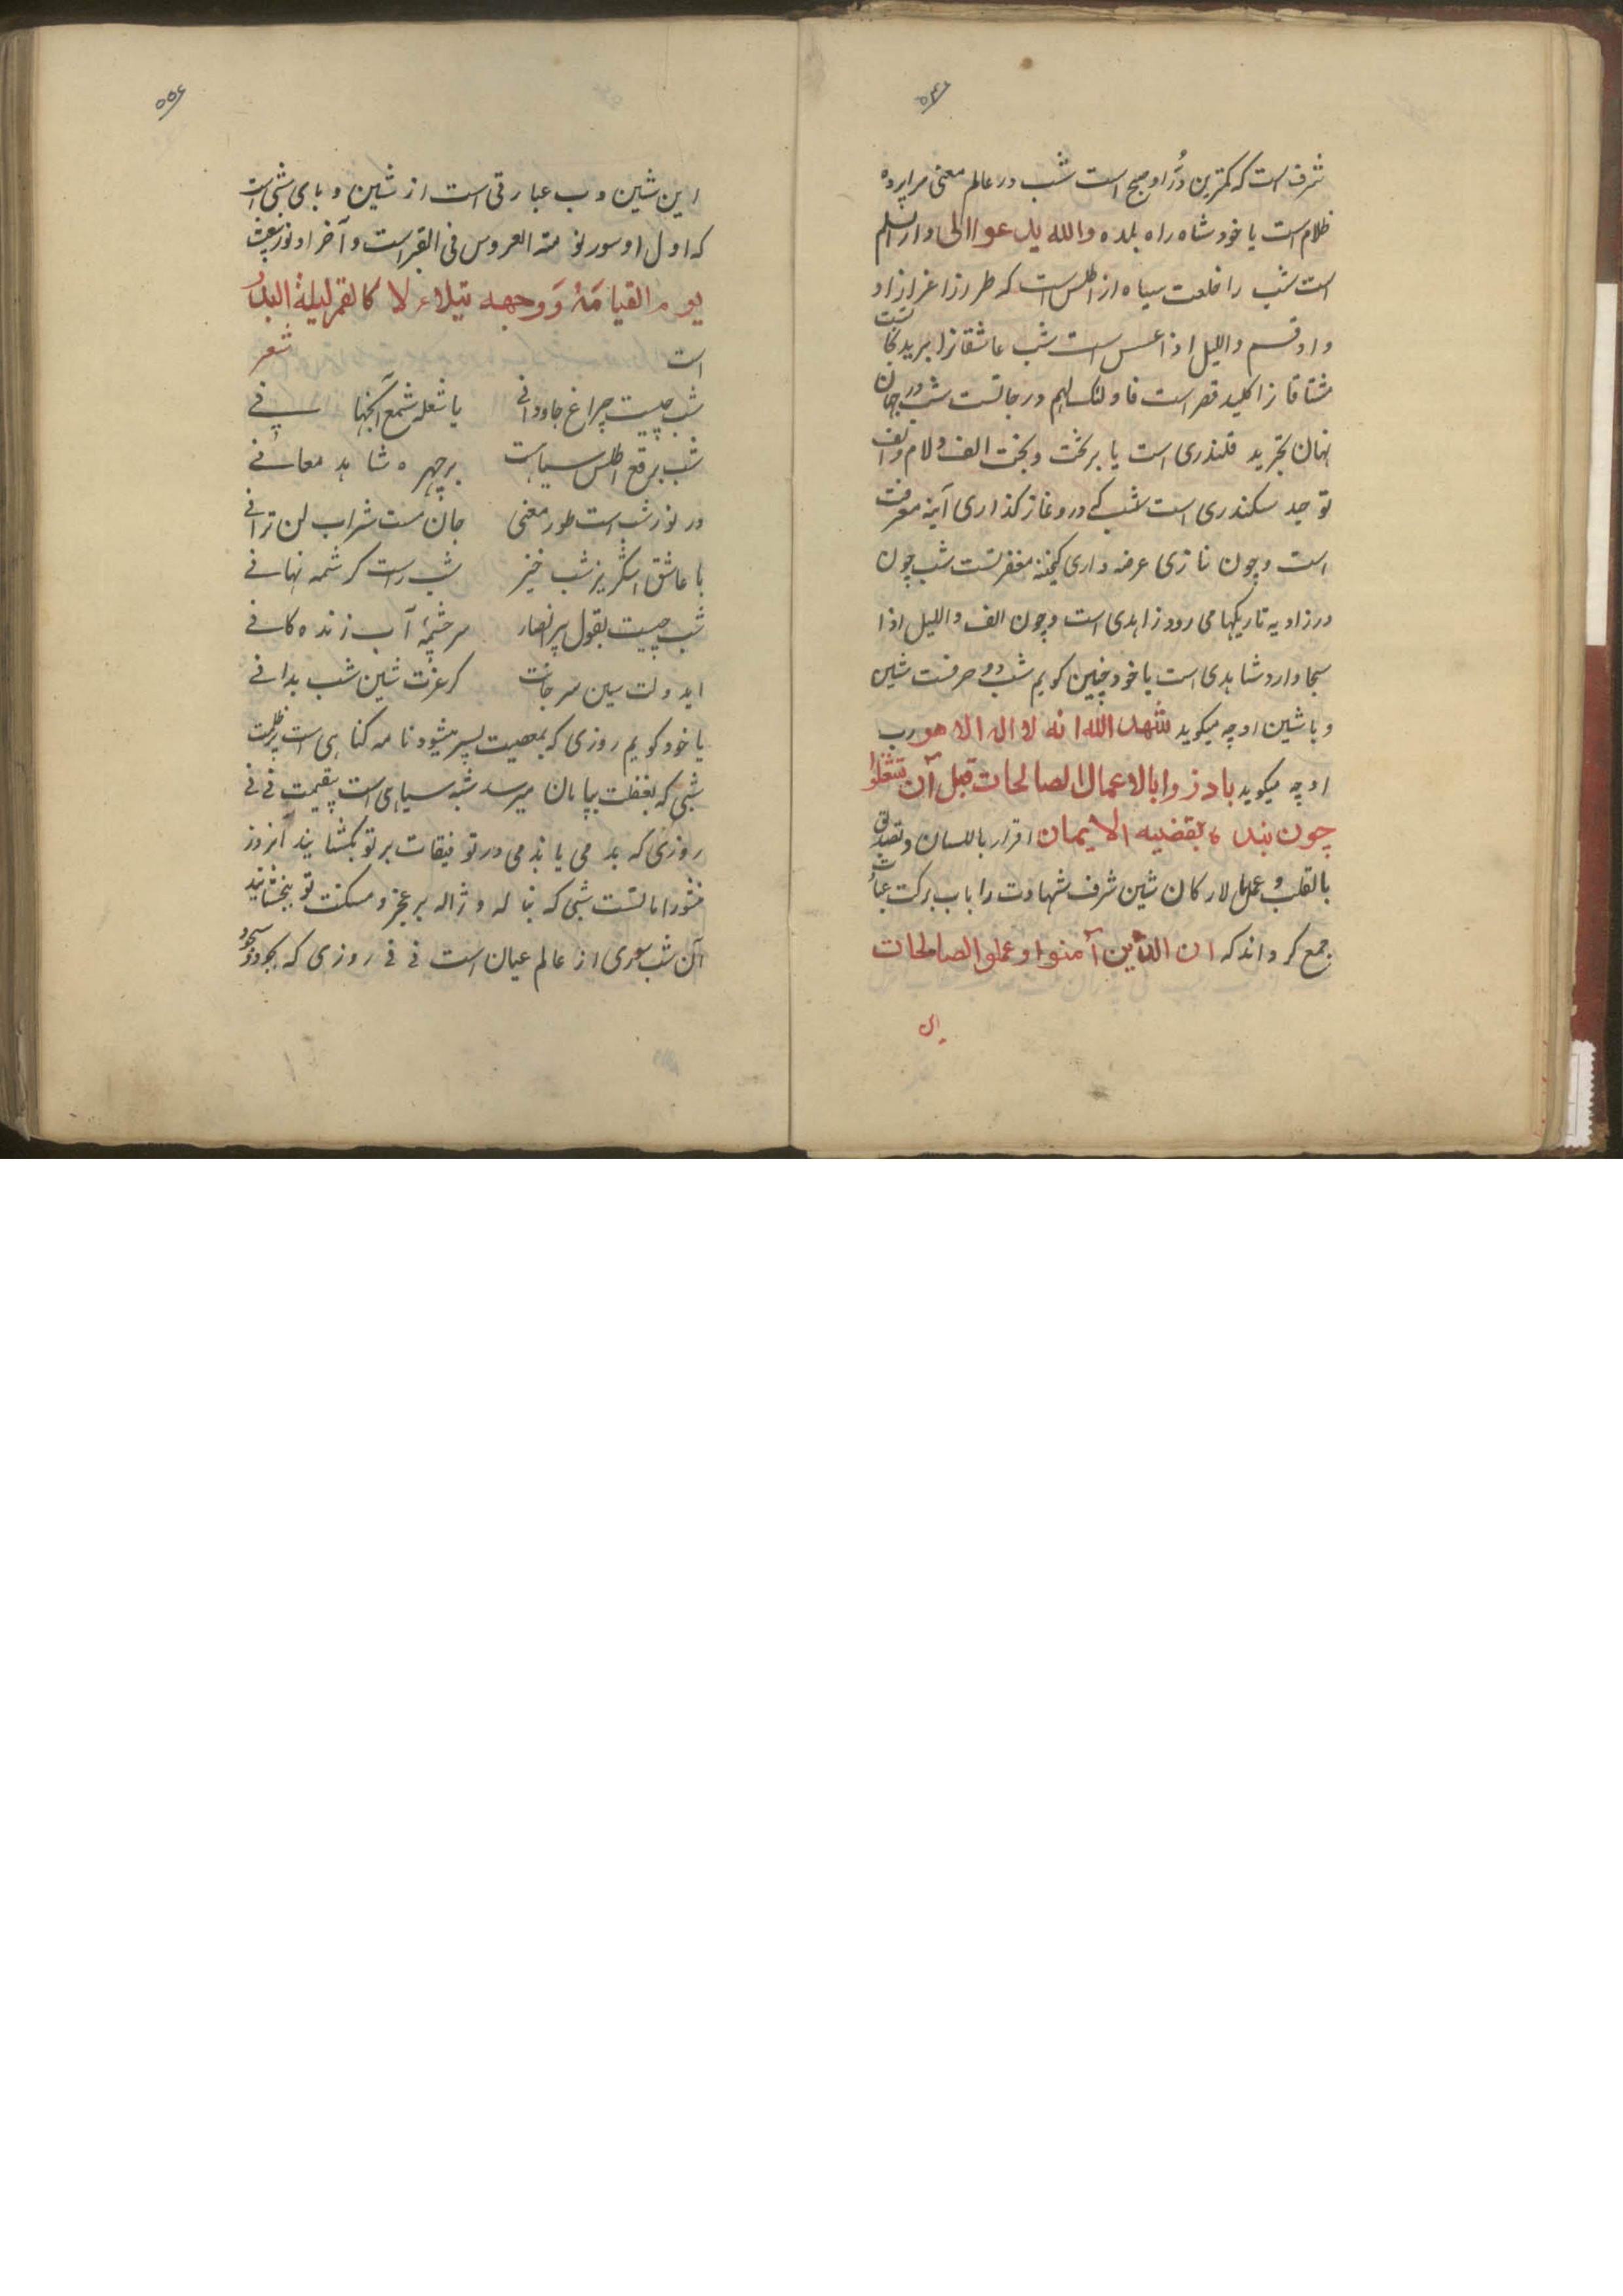 شرف است که کمترین دُرّ او صبح است شب در عالم معنی سراپرده
ظلام است یا خود شاه راه بلده والله یدعوا الی دار السلم
است شب را خلعت سیاه از اطلس است که طرز از اغراز او
و او قسم واللیل اذا عسعس است شب عاشقانرا برید
مشتاقانرا کلید قصر است فاولئک لهم درجاتست شب در جهان
نهان تجرید قلندری است یا بر تخت و بخت الف و لام و الف
توحید سکندری است شب که در وغاز کذاری آینه معرفت
است و چون نازی عرضه داری کنجینه مغفرتست شب چون
در زاویه تاریکها می رود زاهدی است و چون الف واللیل اذا
سجا دارد شاهدی است یا خود چنین کویم شب دو حرفست شین
و با شین او چه میکوید شهد الله انه لا اله الا هو و ب
او چه میکوید بادروا بالاعمال الصالحات قبل آن تشغلوا
چون بنده بقضیه الایمان اقرار باللسان و تصدیق
بالقلب و عمل بالارکان شین شرف شهادت را با ب برکت
جمع کرداند که ان الذین آمنوا و عملوا الصالحات
این شین و ب عبارتی است از شین و بای شبی است
که اول او سور نومة العروس فی القبر است و آخر او نور یبعث
یوم القیامَة وَوجهه یتلاءلا کالقمر لیلة البدر
است شعر
شب چیست چراغ جاودانی یا شعله شمع آنجهانی
شب برقع اطلس سیاهست بر چهره شاهد معانی
در نور شب است طور معنی جان مست شراب لن ترانی
با عاشق اشکریز شب خیز شب راست کرشمه نهانی
شب چیست بقول پیر انصار سرچشمهٔ آب زنده کانی
اید ولت سین سر جانت کر عزت شین شب بدانی
یا خود کویم روزی که بمعصیت بسر میشود نامه کناهی است پر ظلمت
شبی که بغفلت بپایان میرسد شبه سیاهی است بیقیمت نی نی
روزی که بد می یا ندمی در توفیقات بر تو بکشایند آنروز
منشور امانتست شبی که بناله و ژاله بر عجز و مسکنت تو ببخشایند
آن شب سوری از عالم عیان است نی نی روزی که بجود و سجود